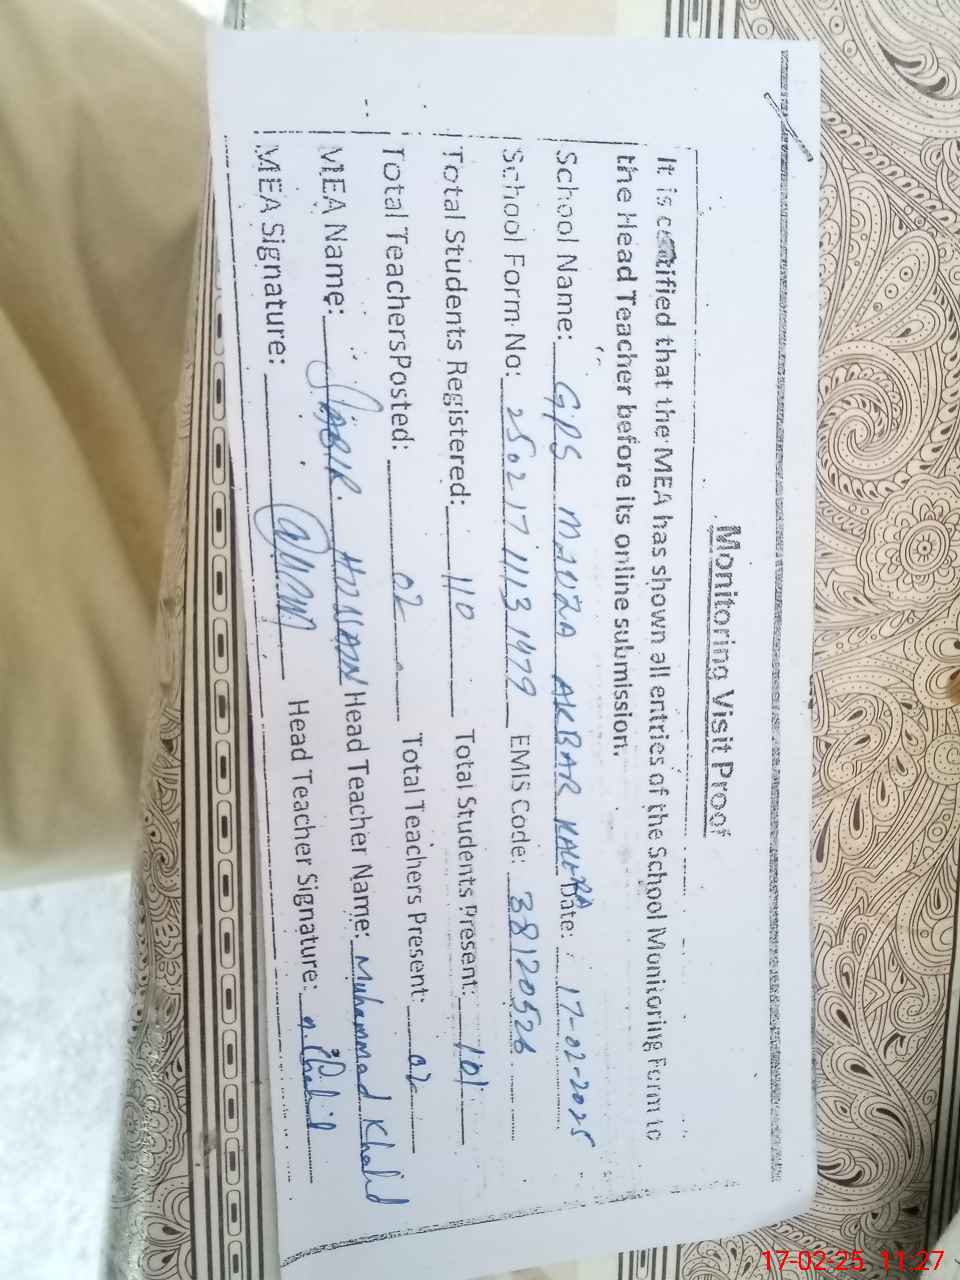 Monitoring Visit Proof
It is certified that the MEA has shown all entries of the School Monitoring Form to
the Head Teacher before its online submission.
School Name: GPS MAUZA AKBAR KALERA Date: 17-02-2025
School Form No: EMIS Code: 38120526
Total Students Registered: 110 Total Students Present: 101
Total Teachers Posted: 02 Total Teachers Present: 02
MEA Name: JABIR HUSSAIN Head Teacher Name: Muhammad Khalid
MEA Signature: Head Teacher Signature:
17-02-25 11:27